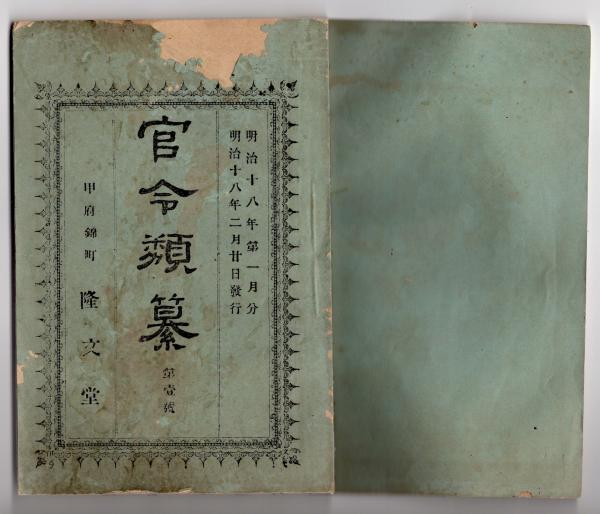 明治十八年第一月分
明治十八年二月廿日發行
官令類纂
第壹號
甲府錦町
隆文堂